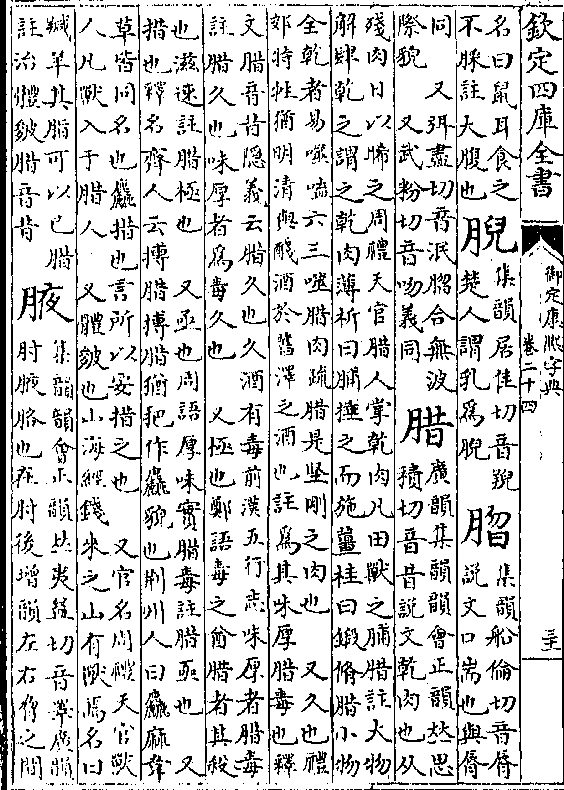 欽定四庫全書
御定康熙字典
卷二十四
名曰鼠耳食之
不䐆註大腹也
集韻居佳切音
楚人謂乳為
脗
集韻船倫切音脣
說文口耑也與脣
同　又弭盡切音泯脗合無波
際貌　又武粉切音吻義同
腊
廣韻集韻韻會正韻𠀤思
積切音昔說文乾肉也从
殘肉日以晞之周禮天官腊人掌乾肉凡田獸之脯腊註大物
解肆乾之謂之乾肉薄析曰脯捶之而施薑桂曰鍛脩腊小物
全乾者易噬嗑六三噬腊肉疏腊是堅剛之肉也　又久也禮
郊特牲猶明清與醆酒於舊澤之酒也註為其味厚腊毒也釋
文腊音昔隱義云腊久也久酒有毒前漢五行志味厚者腊毒
註腊久也味厚者為毒久也　又極也鄭語毒之酋腊者其殺
也滋速註腊極也　又亟也周語厚味實腊毒註腊亟也　又
措也釋名齊人云搏腊搏腊猶把作麤貌也荆州人曰麤麻韋
草皆同名也麤措也言所以安措之也　又官名周禮天官獸
人凡獸入于腊人　又體皴也山海經錢來之山有獸焉名曰
羬羊其脂可以已腊
註治體皴腊音昔
腋
集韻韻會正韻𠀤夷益切音睪廣韻
肘腋胳也在肘後增韻左右脅之間